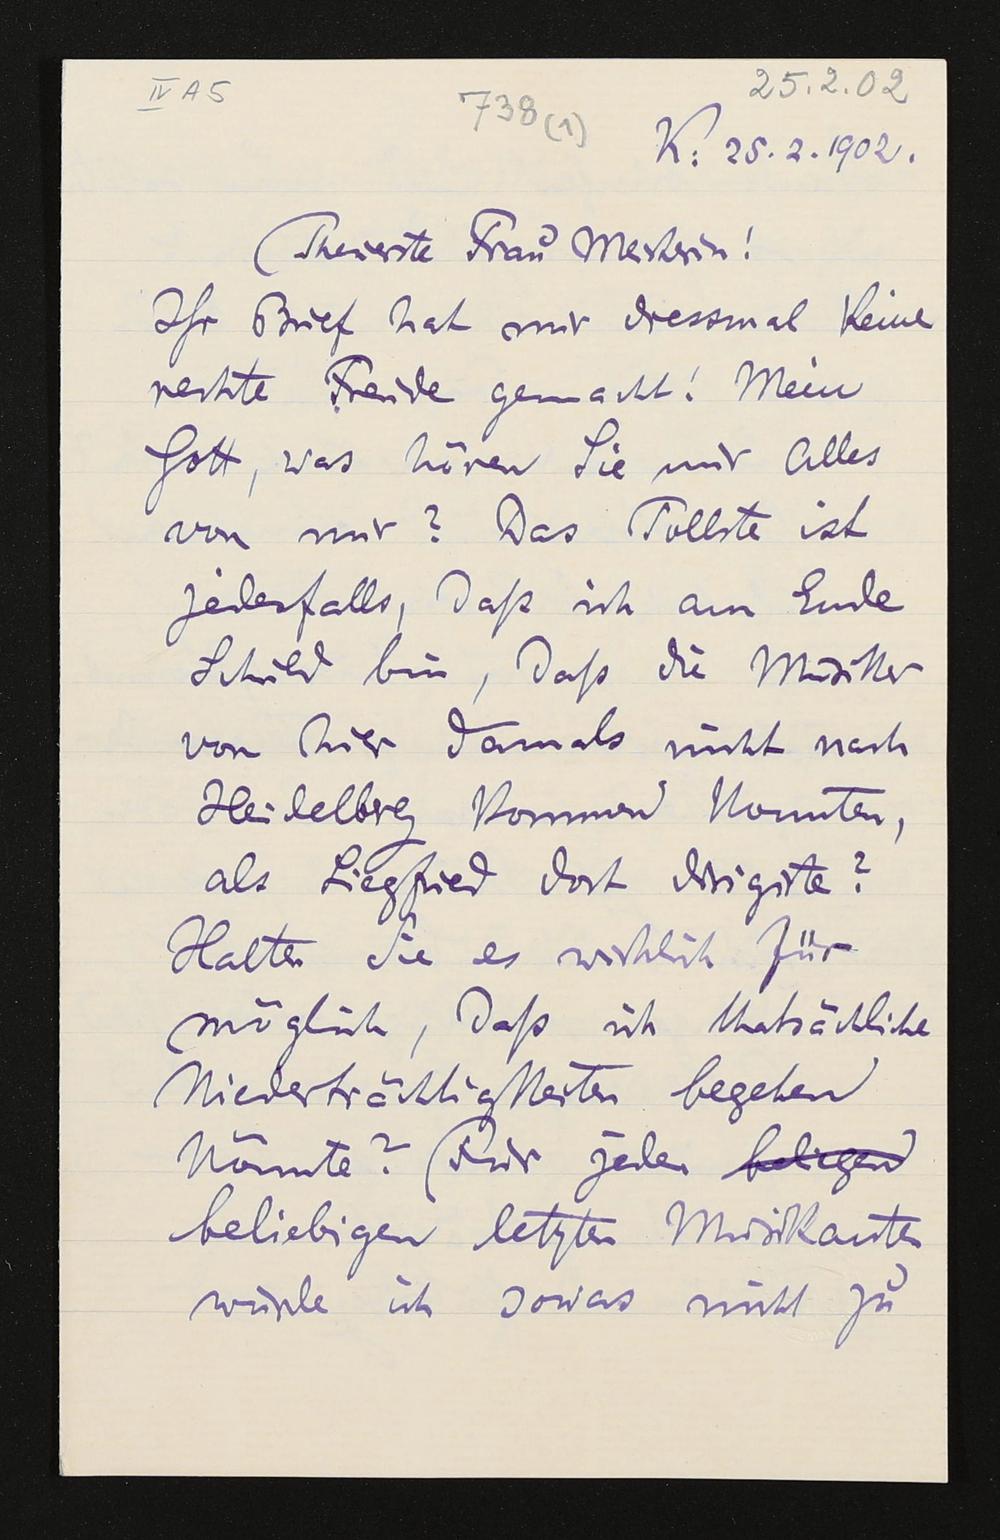 IV A 5
738 (1)
25.2.02
K: 25.2.1902.
Theuerste Frau Meisterin!
Ihr Brief hat mir diessmal keine
rechte Freude gemacht! Mein
Gott, was hören Sie mir Alles
von mir? Das Tollste ist
jedenfalls, daß ich am Ende
Schuld bin, daß die Musiker
von hier damals nicht nach
Heidelberg kommen konnten,
als Siegfried dort dirigirte?
Halten Sie es wirklich für
möglich, daß ich thatsächliche
Niederträchtigkeiten begehen
könnte? Für jeden
beliebigen letzten Musikanten
würde ich sowas nicht zu